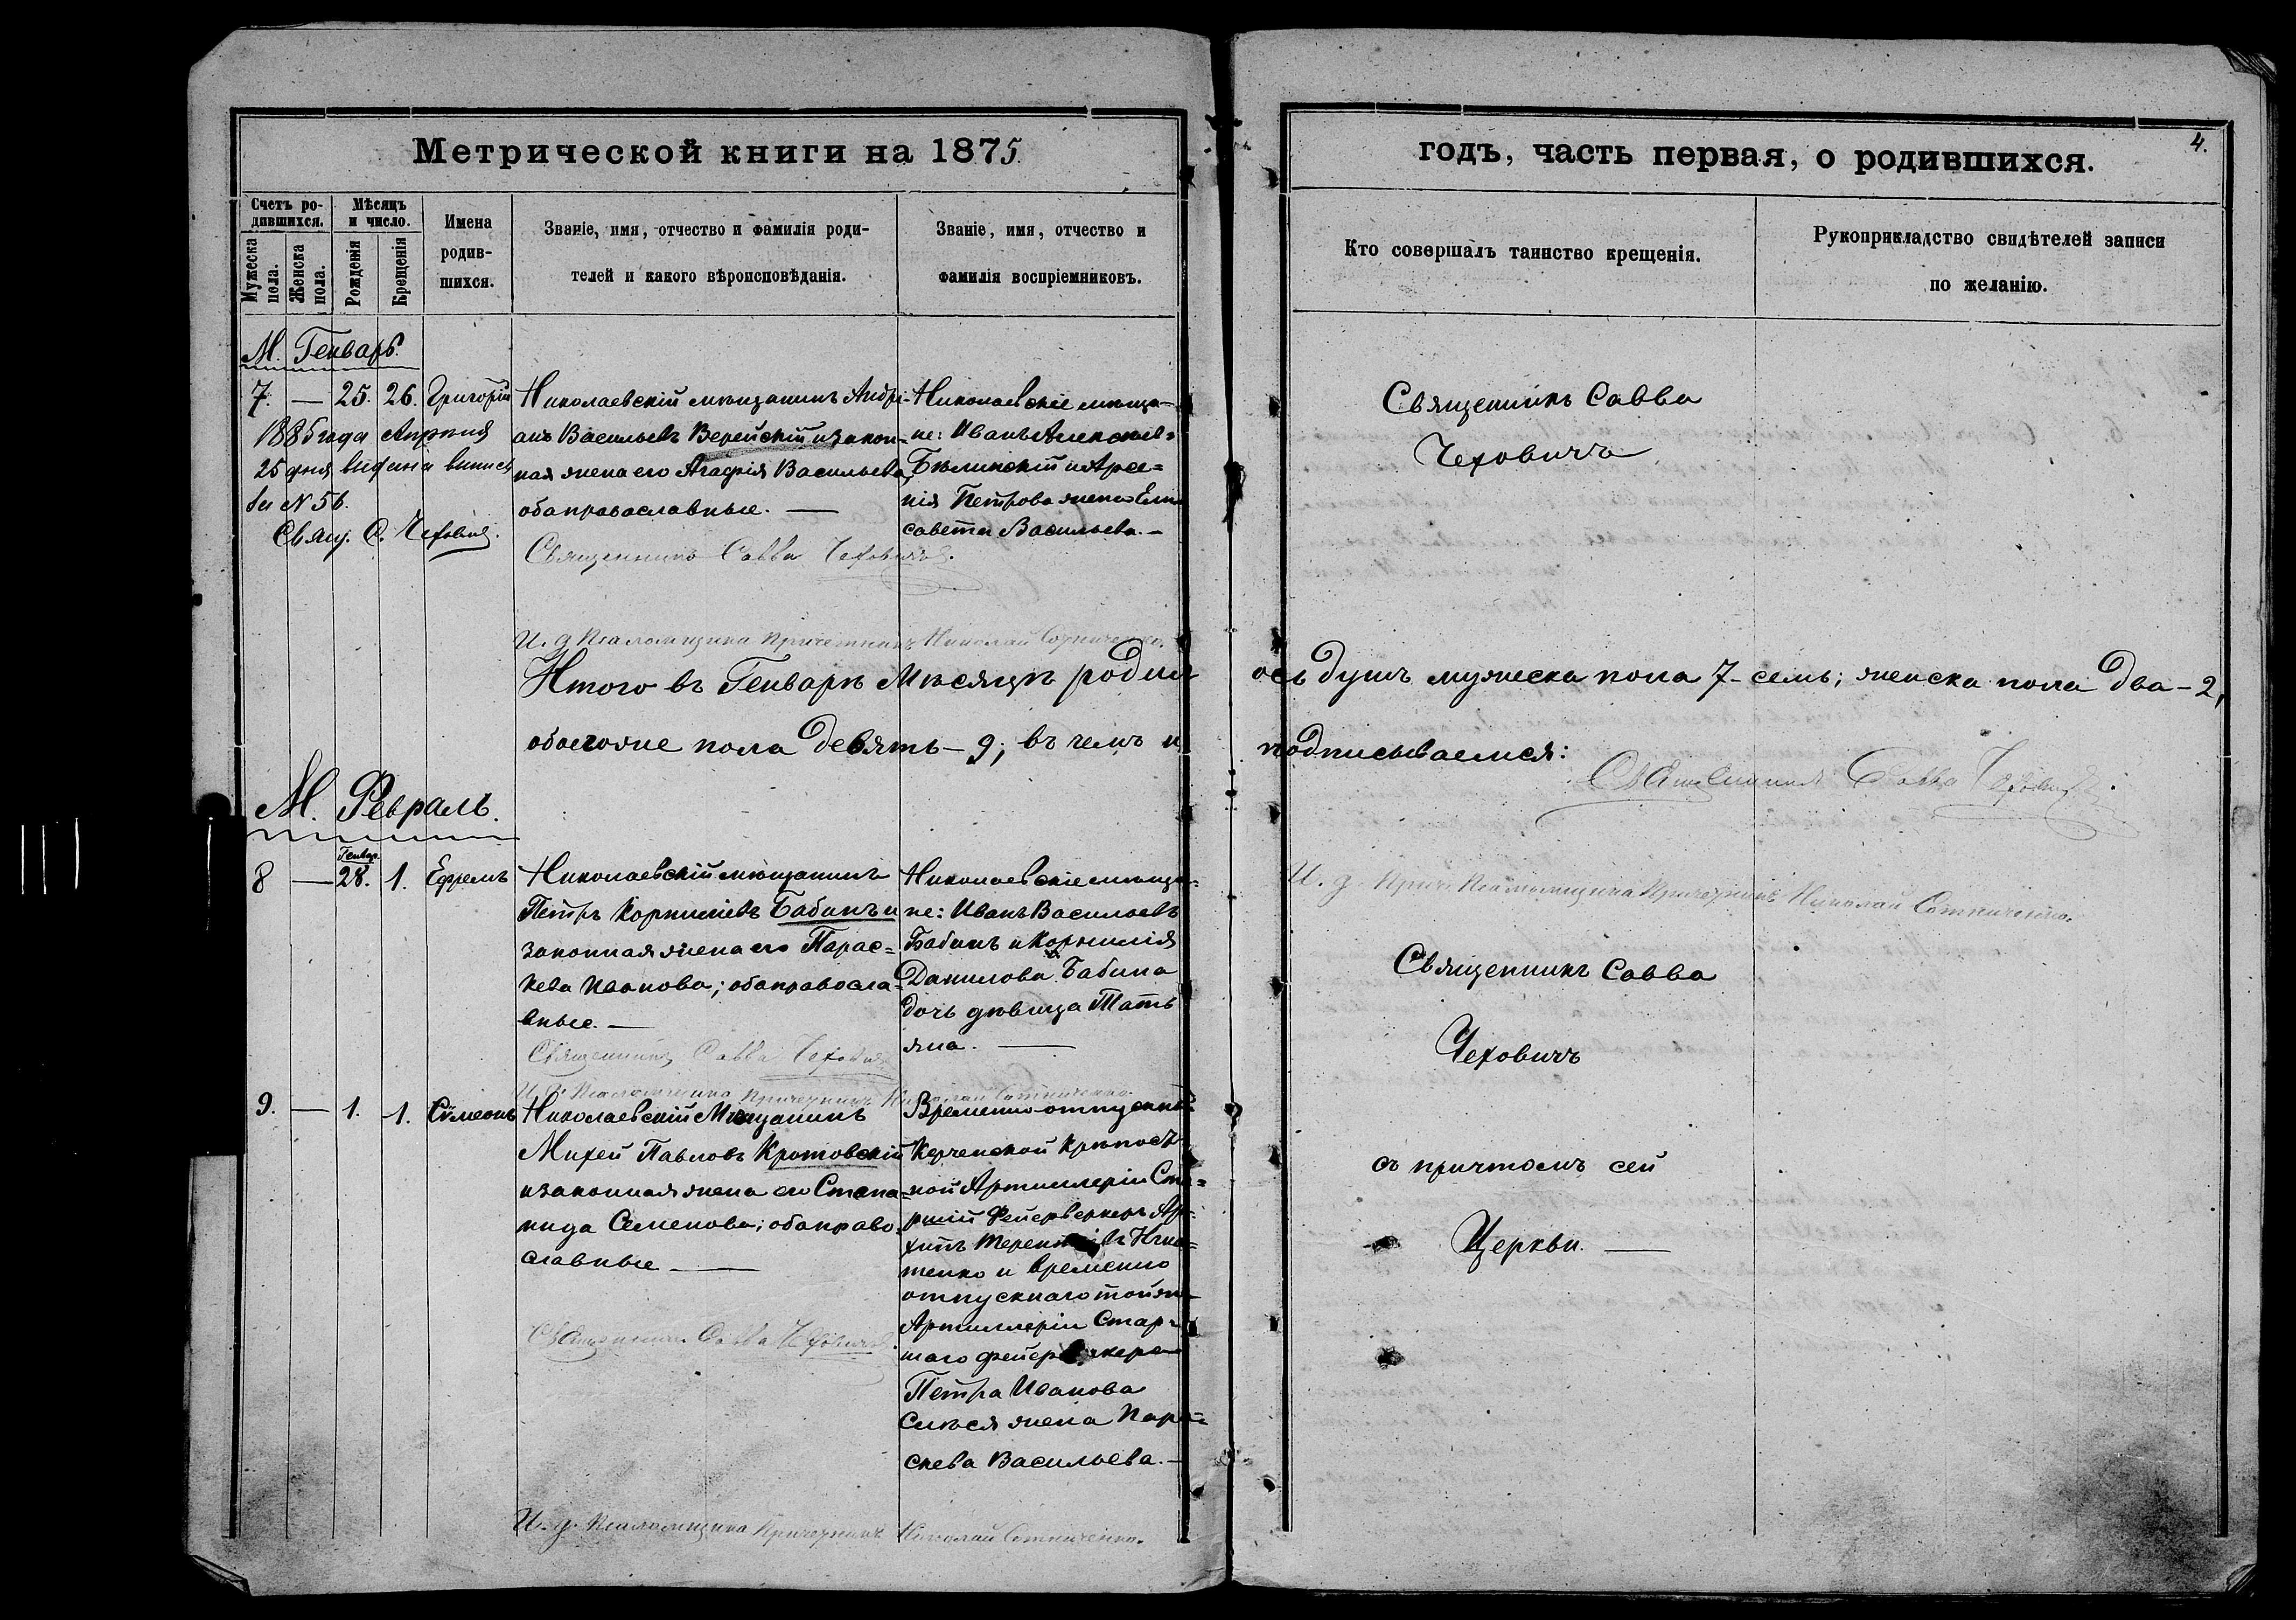 Метрической книги на 1875
годъ, часть первая, о родившихся.
4.
Счетъ ро-
дившихся.
Мужеска
пола.
Женска
пола.
Мѣсяцъ
и число.
Рожденія
Крещенія
Имена
родив-
шихся.
Званіе, имя, отчество и фамилія роди-
телей и какого вѣроисповѣданія.
Званіе, имя, отчество и
фамилія воспріемниковъ.
Кто совершалъ таинство крещенія.
Рукоприкладство свидѣтелей записи
по желанію.
М. Генварь.
7. — 25. 26. Григорій
1885 года Апрѣля
25 дня выдана выпись
№ 56.
Свящ. С. Чеховичъ.
Николаевскій мѣщанинъ Андрі-
анъ Васильевъ Верейскій и закон-
ная жена его Агафія Васильева,
оба православные. —
Священникъ Савва Чеховичъ.
Николаевскіе мѣща-
не: Иванъ Алексѣев-
Бѣлинскій и Арсе-
нія Петрова жена Ели
савета Васильева. —
Священникъ Савва
Чеховичъ
И. д. Псаломщика Причетникъ Николай Сотниченко.
Итого въ Генварѣ Мѣсяцѣ родил
ось душъ мужеска пола 7 - семь; женска пола два - 2,
обоегоже пола девять - 9; въ чемъ и
подписываемся:
Священникъ Савва Чеховичъ.
И. д. Псаломщика Причетникъ Николай Сотниченко.
М. Февраль.
Генвар.
8 — 28. 1. Ефремъ
Николаевскій мѣщанинъ
Петръ Корниліевъ Бабинъ и
законная жена его Парас-
кева Иванова; оба правосла-
вные. —
Священникъ Савва Чеховичъ
И. д. Псаломщика Причетникъ Николай Сотниченко.
Николаевскіе мѣща-
не: Иванъ Васильевъ
Бабинъ и Корнилія
Данилова Бабина
дочь дѣвица Тать
яна. —
Священникъ Савва
Чеховичъ
9. — 1. 1. Сѵмеонъ
Николаевскій Мѣщанинъ
Михей Павловъ Кротовскій
и законная жена его Степа-
нида Семенова; оба право-
славные —
Священникъ Савва Чеховичъ.
Временно-отпускный
Керченской Крѣпост
ной Артиллеріи Ста-
ршій Фейерверкеръ Ар-
хипъ Игна-
тенко и временно
отпускнаго той же
Артиллеріи Стар-
шаго фейерверкера
Петра Иванова
жена Пара-
скева Васильева. —
съ причтомъ сей
Церкви. —
И. д. Псаломщика Причетникъ Николай Сотниченко.